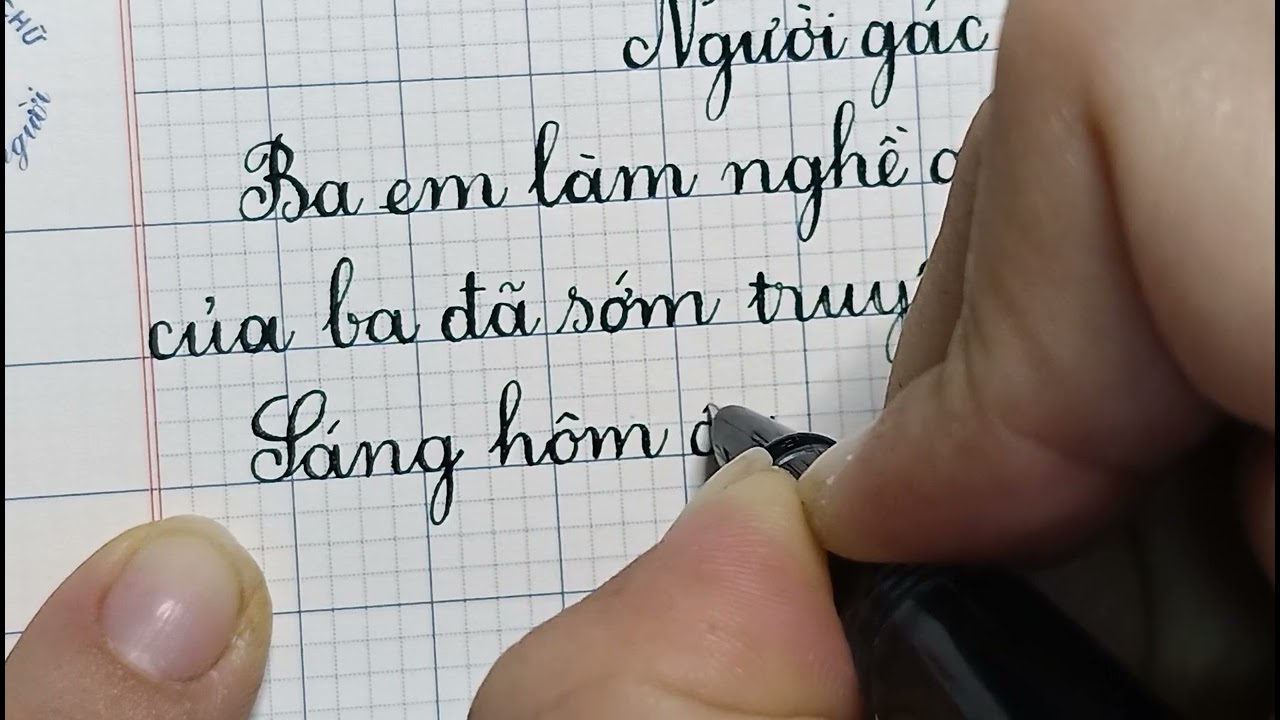 CHỮ
gười
Người gác
Ba em làm nghề
của ba đã sớm
Sáng hôm